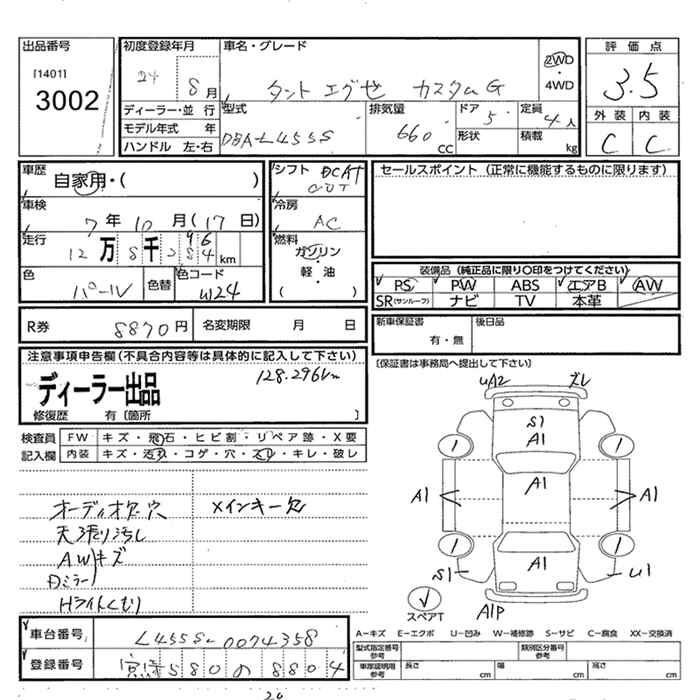 出品番号
[1401]
3002
初度登録年月
24 8月
車名・グレード
タント エグゼ カスタムG
2WD
・
4WD
評価点
3.5
外装 内装
C C
ディーラー・並行
モデル年式 年
ハンドル 左・右
型式
DBA-L455S
排気量
660 cc
ドア
5
形状
定員
4人
積載
kg
車歴
自家用・( )
車検
7年10月(17日)
走行
km
色
パール
色替
色コード
W24
シフト
冷房
AC
燃料
ガソリン
・
軽・油
( )
セールスポイント(正常に機能するものに限ります)
装備品(純正品に限り〇印をつけてください)
PS PW ABS エアB AW
SR(サンルーフ) ナビ TV 本革
R券 8870円 名変期限 月 日
新車保証書
有・無
後日品
[保証書は事務局へ提出して下さい]
注意事項申告欄(不具合内容等は具体的に記入して下さい)
ディーラー出品
128.296km
修復歴 有〔箇所 〕
検査員
記入欄
FW キズ・飛石・ヒビ割・リペア跡・X要
内装 キズ・汚れ・コゲ・穴・スレ・キレ・破レ
オーディオ欠.穴
メインキー欠
天張り汚し
AWキズ
Dミラー
Hライトくもり
UA2
ズレ
S1
A1
A1
A1
A1
A1
1
1
1
1
S1
U1
スペアT
A1P
A-キズ E-エクボ U-凹み W-補修跡 S-サビ C-腐食 XX-交換済
車台番号 L455S-0074358
登録番号 580 の 8804
型式指定番号
参考
類別区分番号
参考
車庫証明用
参考
長さ cm
幅 cm
高さ cm